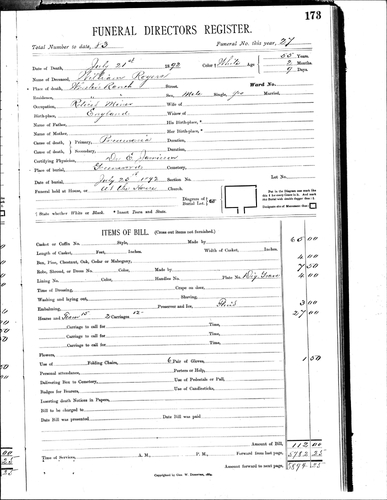 173
FUNERAL DIRECTORS REGISTER.
Total Number to date, 83 Funeral No. this year, 27
Date of Death, July 21st 1892 Color † White Age 55 Years. 2 Months. 9 Days.
Name of Deceased, William Rogers
* Place of death, Ranch Street. Ward No.
Residence, " " Sex, Male Single, yes Married,
Occupation, Retired Miner Wife of
Birth-place, England Widow of
Name of Father, His Birth-place, *
Name of Mother, Her Birth-place, *
Cause of death, } Primary, Pneumonia Duration,
Cause of death, } Secondary, Duration,
Certifying Physician, Dr E.
Place of burial, Cemetery,
Date of burial, July 23d 1892 Section No. Lot No.
Funeral held at House, or at the Church.
Diagram of Burial Lot.
For in the Diagram one mark the lot for every Grave in it. And mark the Burial with number figure thus
Designate site of Monument thus
† State whether White or Black. * Insert Town and State.
ITEMS OF BILL. (Cross out Items not furnished.)
Casket or Coffin No. Style, Made by 65 00
Length of Casket, Feet, Inches. Width of Casket, Inches.
Box, Pine, Chestnut, Oak, Cedar or Mahogany, 4 00
Robe, Shroud, or Dress No. Color, Made by 7 50
Lining No. Color, Handles No. Plate No. Dig Grave 4 00
Time of Dressing, Crape on time,
Washing and laying out, Shaving,
Embalming, Preserver and fee, 3 00
Hearse and 15 2 Carriages 12 27 00
Carriage to call for Time,
Carriage to call for Time,
Carriage to call for Time,
Carriage to call for Time,
Flowers,
Use of Folding Chairs, 6 Pair of Gloves, 1 50
Personal attendance, Porters or Help,
Delivering Box to Cemetery, Use of Pedestals or Pall,
Badges for Bearers, Use of Candlesticks,
Inserting death Notices in Papers,
Bill to be charged to
Date Bill was presented Date Bill was paid
Amount of Bill, 112 00
Time of Services, A. M., P. M., Forward from last page, 5782 25
Amount forward to next page, 5894 25